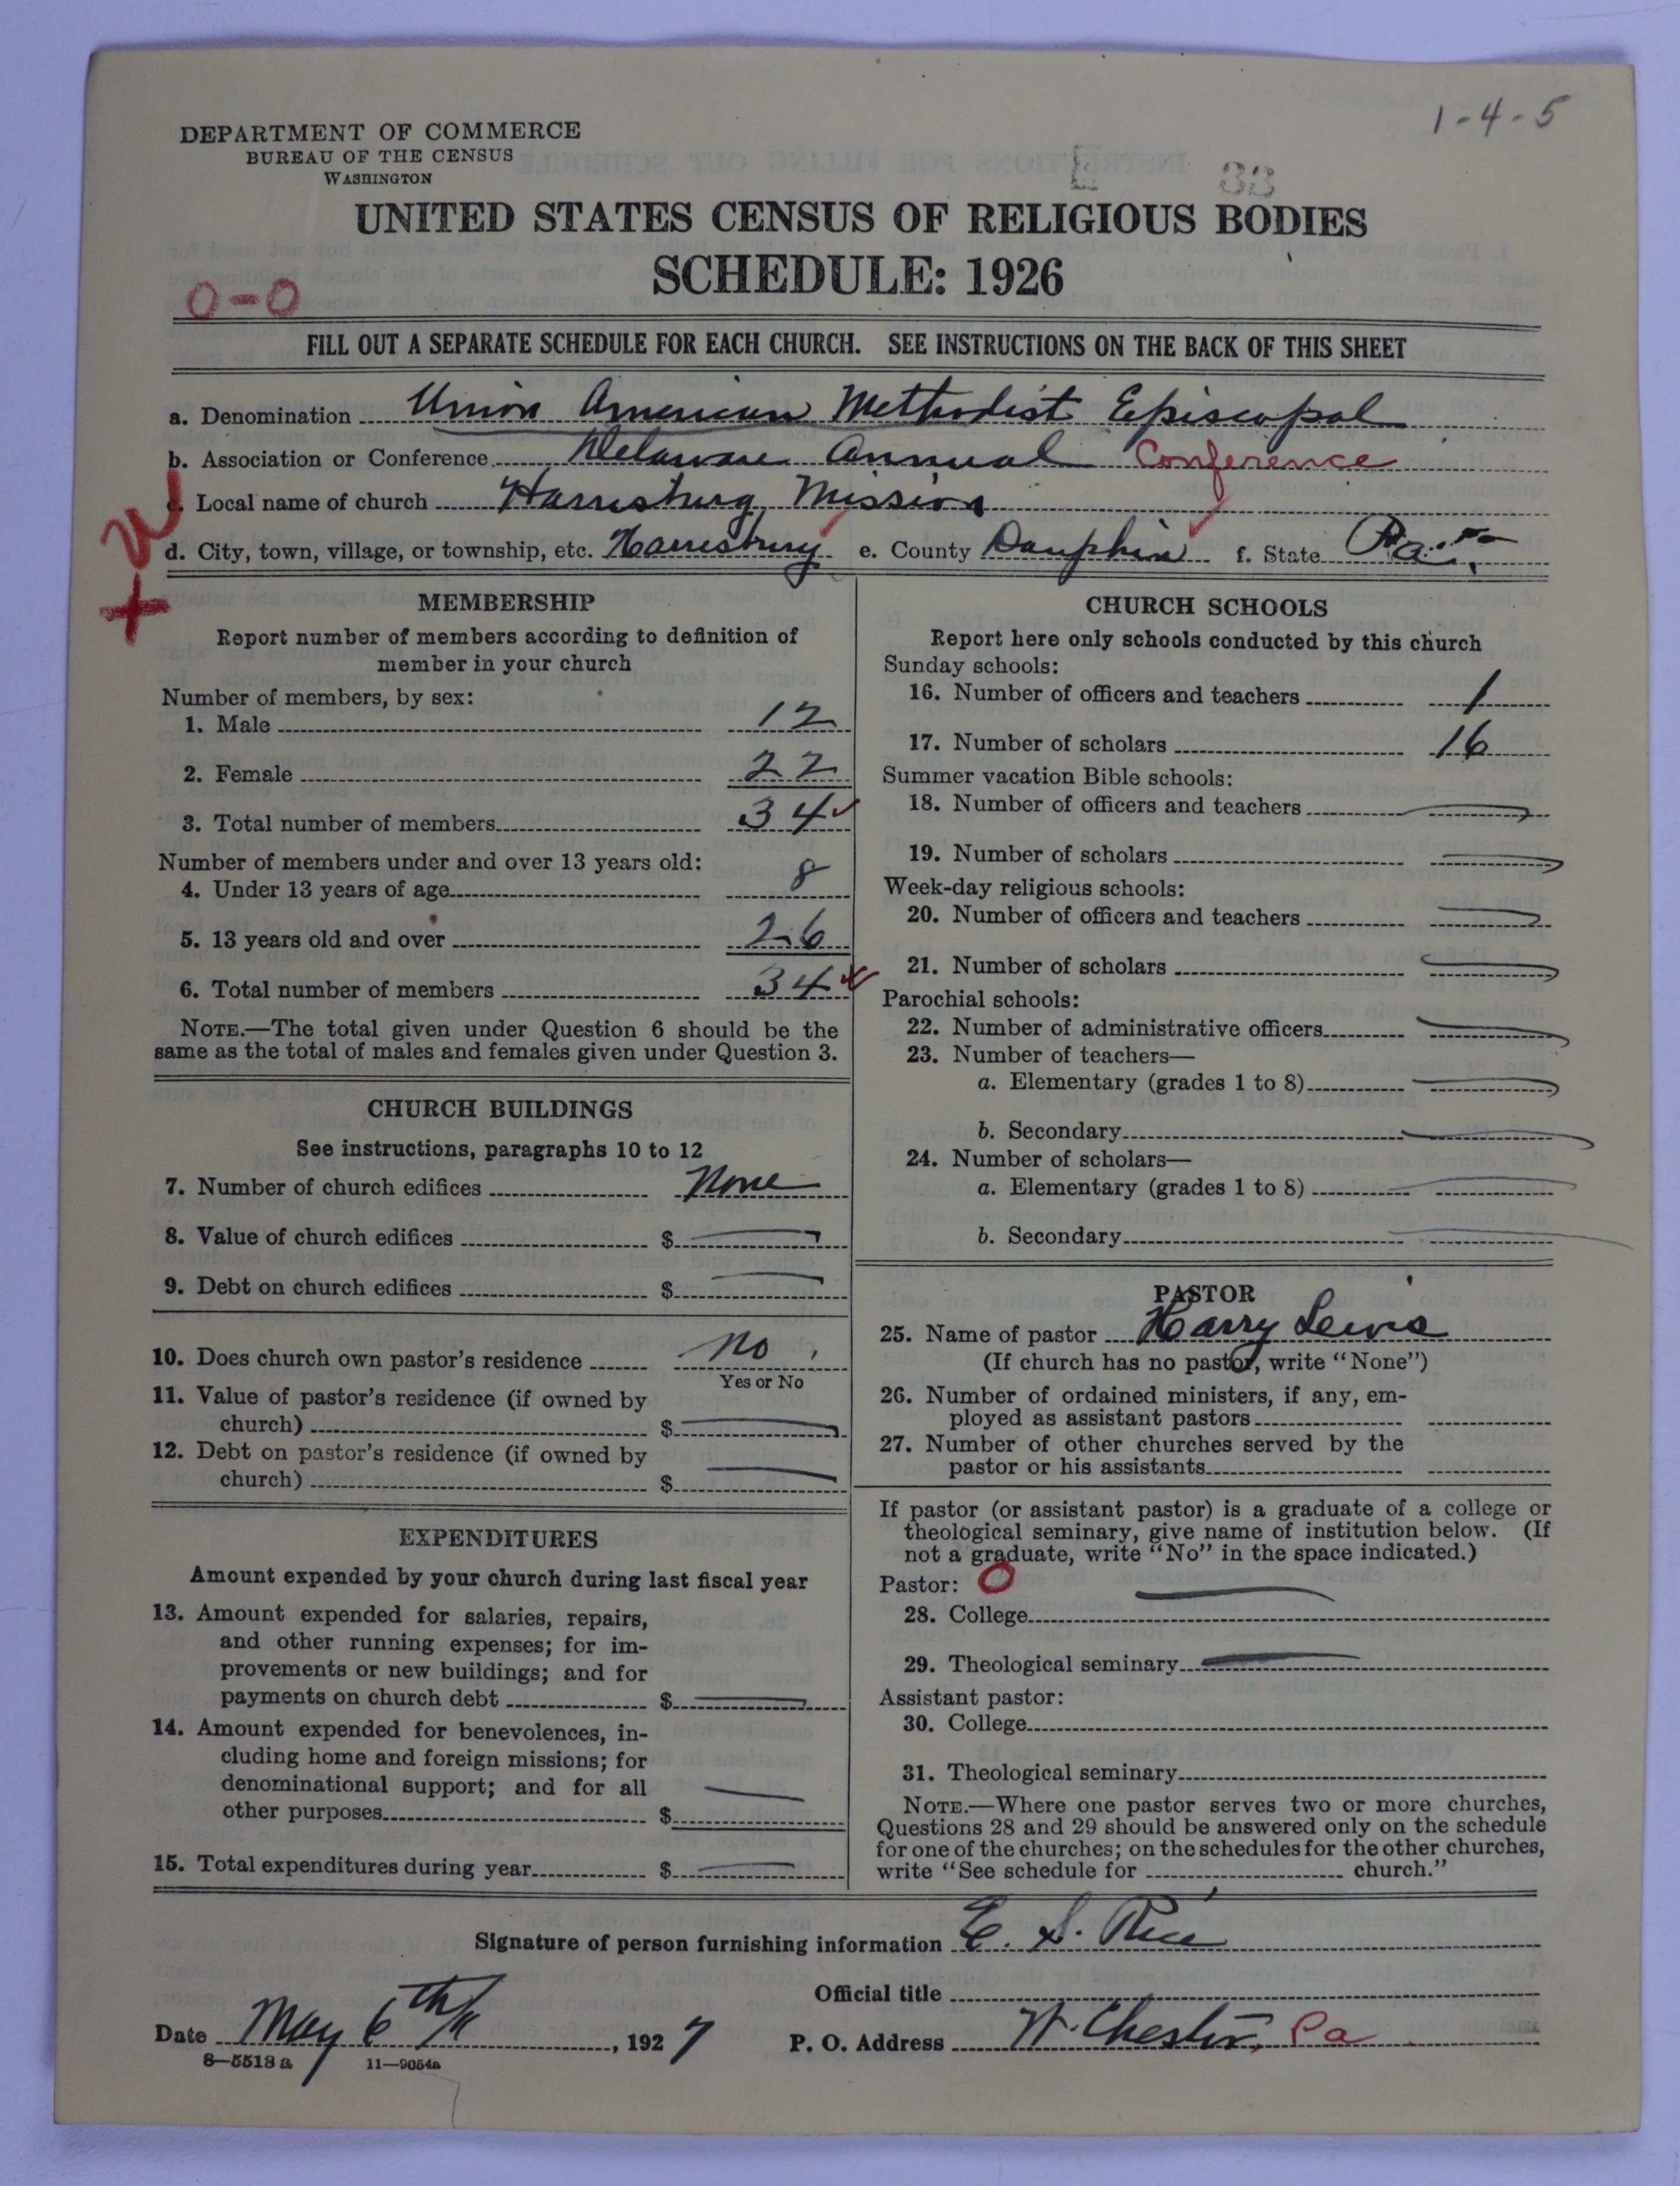 1-4-5
DEPARTMENT OF COMMERCE
BUREAU OF THE CENSUS
WASHINGTON
E 33
UNITED STATES CENSUS OF RELIGIOUS BODIES
SCHEDULE: 1926
0-0
FILL OUT A SEPARATE SCHEDULE FOR EACH CHURCH. SEE INSTRUCTIONS ON THE BACK OF THIS SHEET
a. Denomination Union American Methodist Episcopal
b. Association or Conference Delaware Annual Conference
c. Local name of church Harrisburg Mission
d. City, town, village, or township, etc. Harrisburg e. County Dauphin f. State Pa.
MEMBERSHIP
Report number of members according to definition of
member in your church
Number of members, by sex:
1. Male 12
2. Female 22
3. Total number of members 34
Number of members under and over 13 years old:
4. Under 13 years of age 8
5. 13 years old and over 26
6. Total number of members 34
NOTE.—The total given under Question 6 should be the
same as the total of males and females given under Question 3.
CHURCH BUILDINGS
See instructions, paragraphs 10 to 12
7. Number of church edifices None
8. Value of church edifices $
9. Debt on church edifices $
10. Does church own pastor's residence No
Yes or No
11. Value of pastor's residence (if owned by
church) $
12. Debt on pastor's residence (if owned by
church) $
EXPENDITURES
Amount expended by your church during last fiscal year
13. Amount expended for salaries, repairs,
and other running expenses; for im-
provements or new buildings; and for
payments on church debt $
14. Amount expended for benevolences, in-
cluding home and foreign missions; for
denominational support; and for all
other purposes $
15. Total expenditures during year $
CHURCH SCHOOLS
Report here only schools conducted by this church
Sunday schools:
16. Number of officers and teachers 1
17. Number of scholars 16
Summer vacation Bible schools:
18. Number of officers and teachers
19. Number of scholars
Week-day religious schools:
20. Number of officers and teachers
21. Number of scholars
Parochial schools:
22. Number of administrative officers
23. Number of teachers—
a. Elementary (grades 1 to 8)
b. Secondary
24. Number of scholars—
a. Elementary (grades 1 to 8)
b. Secondary
PASTOR
25. Name of pastor Harry Lewis
(If church has no pastor, write "None")
26. Number of ordained ministers, if any, em-
ployed as assistant pastors
27. Number of other churches served by the
pastor or his assistants
If pastor (or assistant pastor) is a graduate of a college or
theological seminary, give name of institution below. (If
not a graduate, write "No" in the space indicated.)
Pastor: O
28. College
29. Theological seminary
Assistant pastor:
30. College
31. Theological seminary
NOTE.—Where one pastor serves two or more churches,
Questions 28 and 29 should be answered only on the schedule
for one of the churches; on the schedules for the other churches,
write "See schedule for church."
Signature of person furnishing information E. S. Rice
Official title
Date May 6th, 1927 P. O. Address W. Chester, Pa
8-5518a 11-9054a